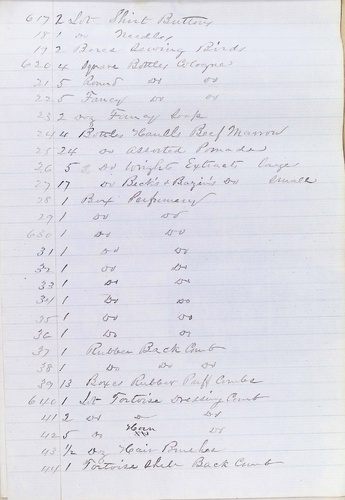 617 2 Lot Shirt Buttons
18 1 do Needles
19 2 Boxes Sewing Birds
620 4 Square Bottles Cologne
21 5 Round do do
22 5 Fancy do do
23 2 oz Fancy Soap
24 4 Bottles Beef Marrow
25 24 do Assorted Pomades
26 5 do Wrights Extracts large
27 17 do Beck's & Bazin's do small
28 1 Box Perfumery
29 1 do do
630 1 do do
31 1 do do
32 1 do do
33 1 do do
34 1 do do
35 1 do do
36 1 do do
37 1 Rubber Back Comb
38 1 do do do
39 13 Boxes Rubber Puff Combs
640 1 Lot Tortoise Dressing Comb
41 2 do do do
42 5 do Horn do
43 1/2 oz Hair Brushes
44 1 Tortoise Shell Back Comb